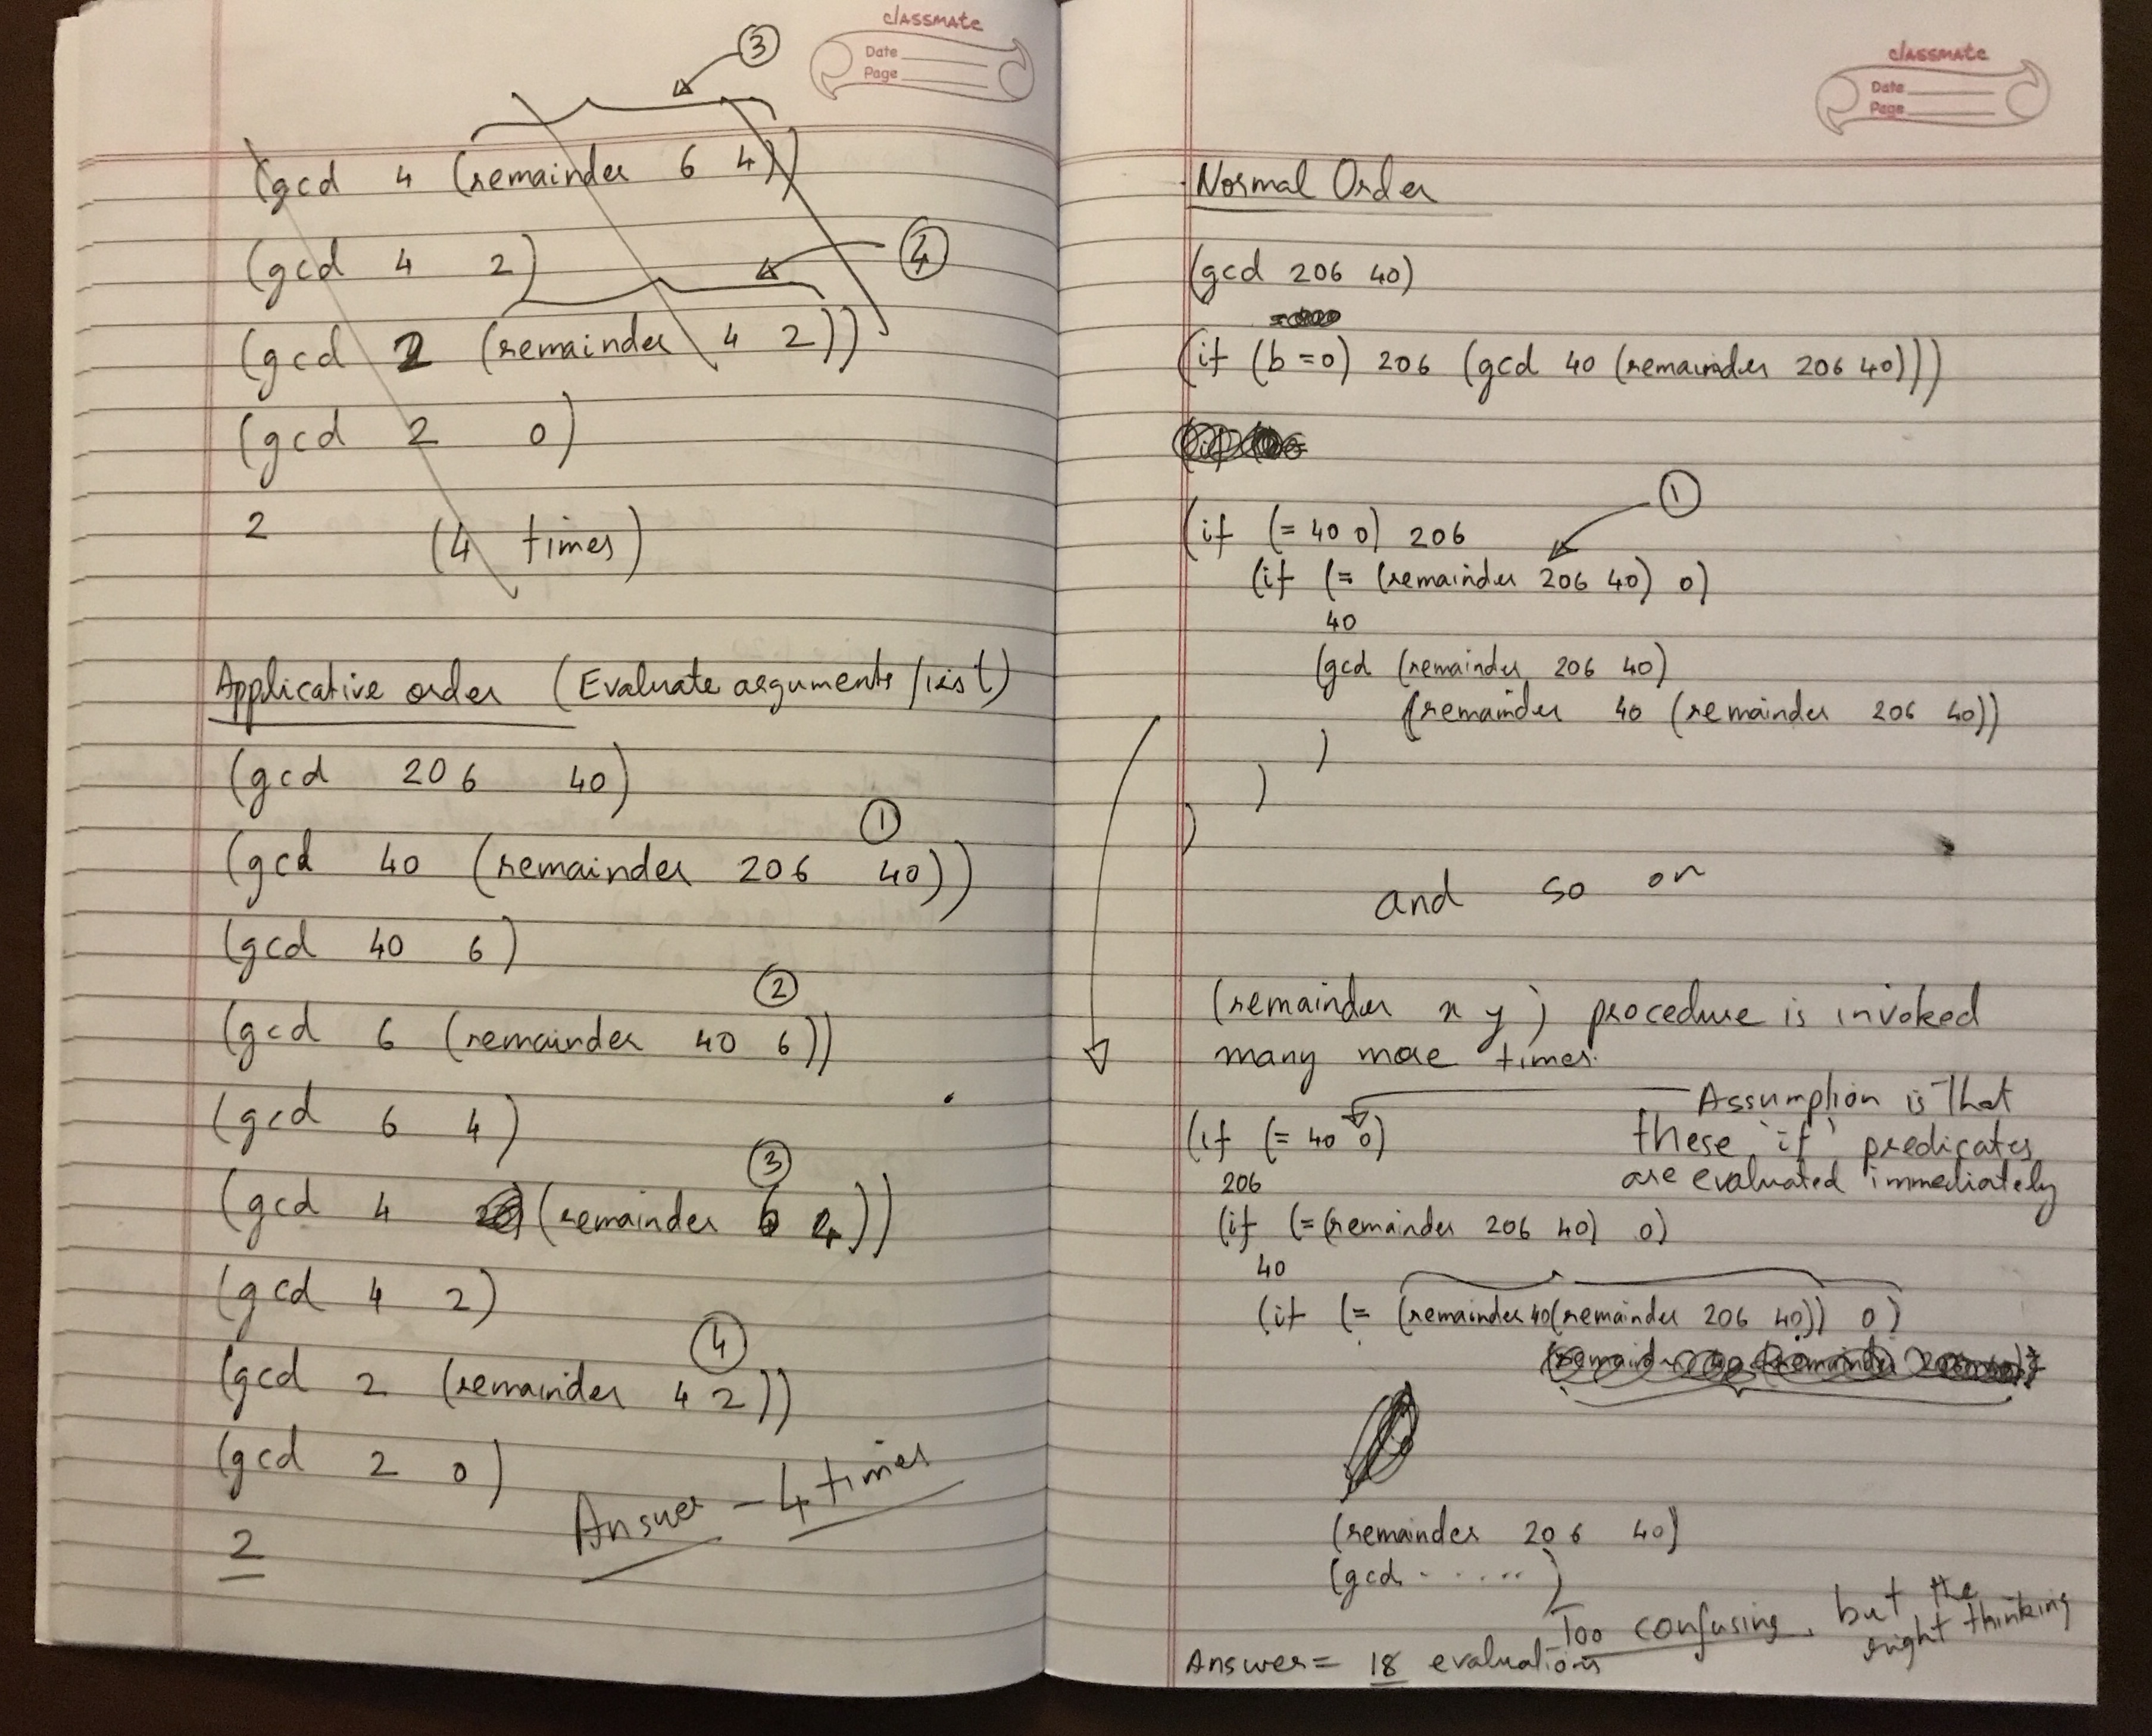 classmate
Date
Page
③
(gcd 4 (remainder 6 4))
(gcd 4 2)
④
(gcd 2 (remainder 4 2))
(gcd 2 0)
2 (4 times)
Applicative order (Evaluate arguments first)
(gcd 206 40)
①
(gcd 40 (remainder 206 40))
(gcd 40 6)
②
(gcd 6 (remainder 40 6))
(gcd 6 4)
③
(gcd 4 (remainder 6 4))
(gcd 4 2)
④
(gcd 2 (remainder 4 2))
(gcd 2 0)
Answer - 4 times
2
classmate
Date
Page
Normal Order
(gcd 206 40)
(if (b=0) 206 (gcd 40 (remainder 206 40)))
①
(if (= 40 0) 206
(if (= (remainder 206 40) 0)
40
(gcd (remainder 206 40)
(remainder 40 (remainder 206 40))
)
)
)
and so on
(remainder x y) procedure is invoked
many more times.
Assumption is that
these 'if' predicates
are evaluated immediately
(if (= 40 0)
206
(if (= (remainder 206 40) 0)
40
(if (= (remainder 40 (remainder 206 40)) 0)
(remainder 206 40)
(gcd . . . . . )
Too confusing, but the
right thinking
Answer = 18 evaluations